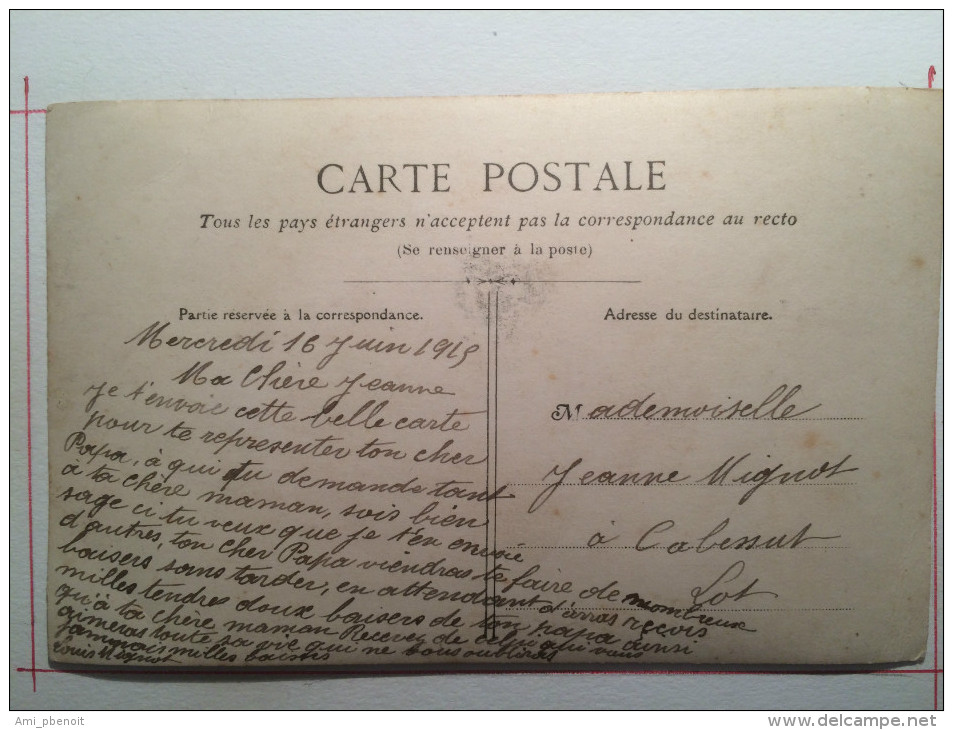 CARTE POSTALE
Tous les pays étrangers n'acceptent pas la correspondance au recto
(Se renseigner à la poste)
Partie réservée à la correspondance.
Mercredi 16 Juin 1915
Ma Chère Jeanne
Je t'envoie cette belle carte
pour te representer ton cher
Papa, à qui tu demande tant
à ta chère maman, sois bien
sage ci tu veux que je t'en envoie
d'autres, ton cher Papa viendras te faire de nombreux
baisers sans tarder, en attendant d'arras reçois
milles tendres doux baisers de ton papa ainsi
qu'à ta chère maman Recever de celui qui vous
aimeras toute sa vie qui ne vous oublieras
jammais milles baisers
Louis Mignot
Adresse du destinataire.
Mademoiselle
Jeanne Mignot
à Cabessut
Lot
Ami_pbenoit
delcampe.net